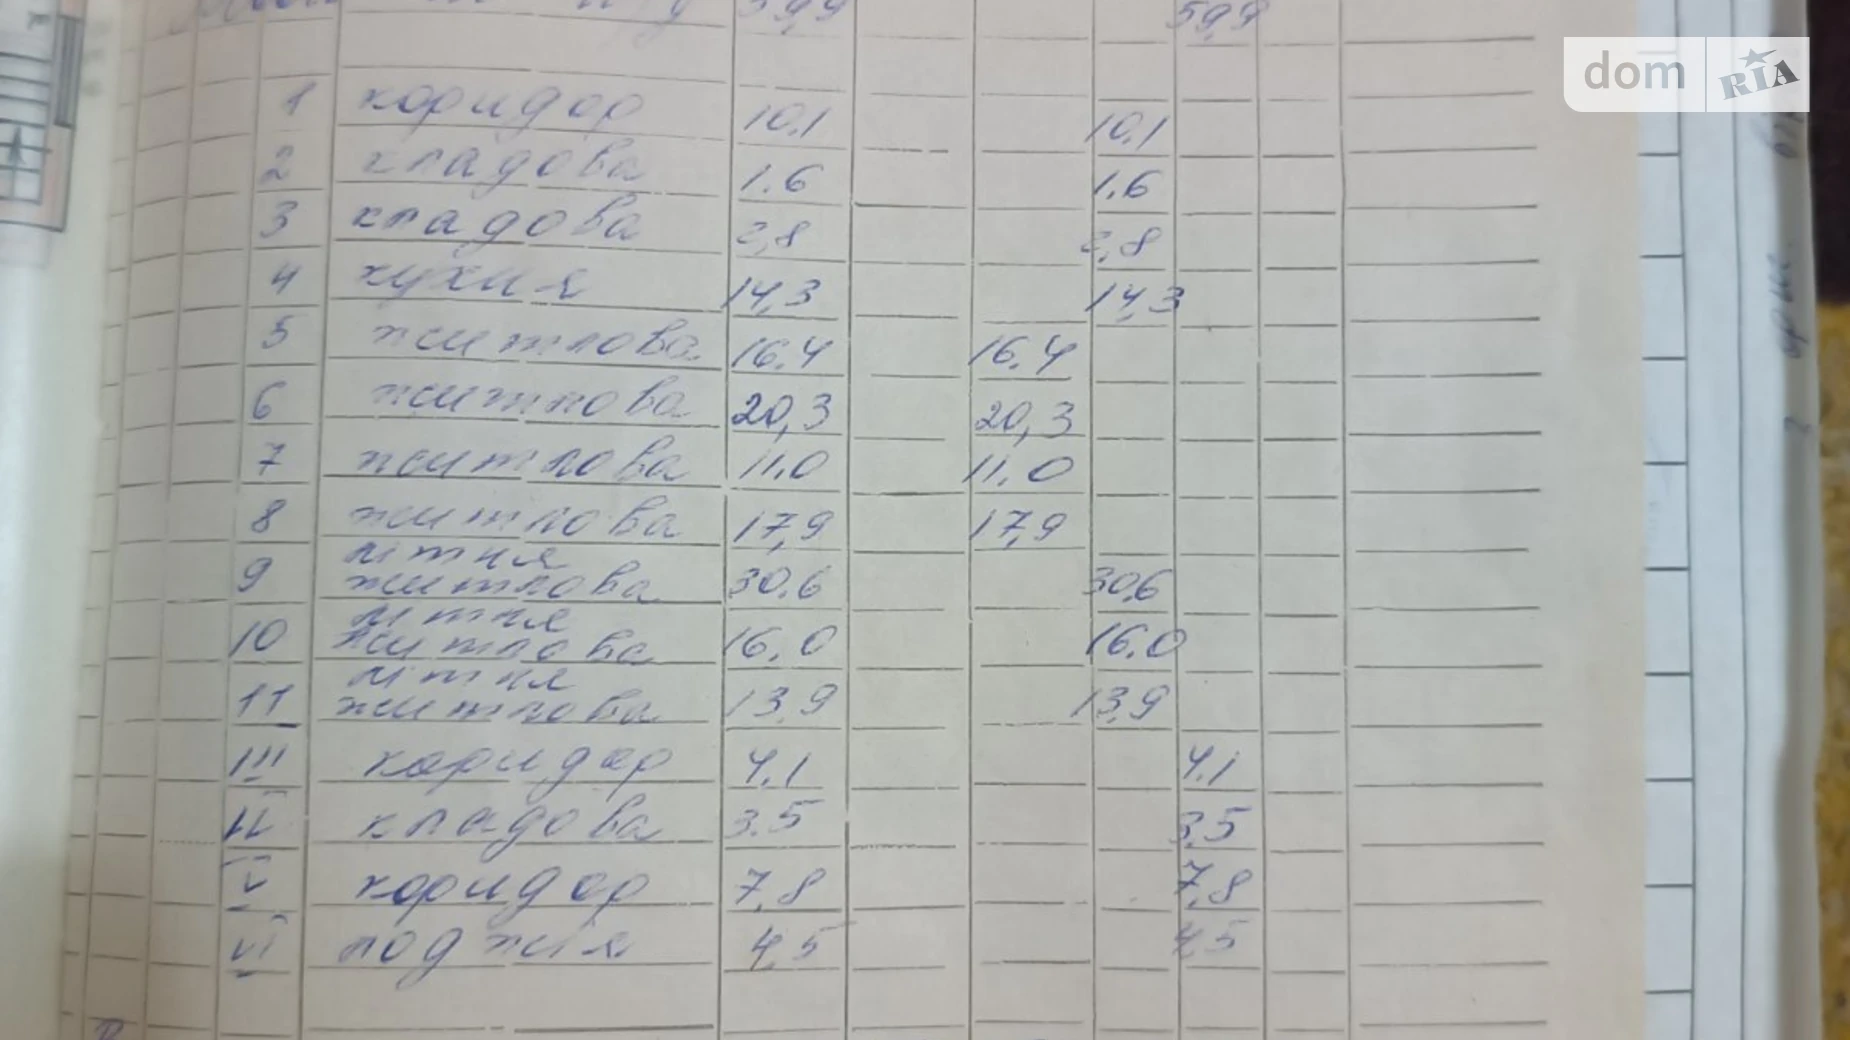 59,9 59,9
1 коридор 10,1 10,1
2 кладова 1.6 1.6
3 кладова 2,8 2,8
4 кухня 14,3 14,3
5 житлова 16.4 16.4
6 житлова 20,3 20,3
7 житлова 11.0 11.0
8 житлова 17,9 17,9
літня
9 житлова 30.6 30.6
літня
10 житлова 16.0 16.0
літня
11 житлова 13,9 13,9
III коридор 4.1 4.1
IV кладова 3.5 3.5
V коридор 7,8 7,8
VI лоджія 4,5 4,5
dom RIA